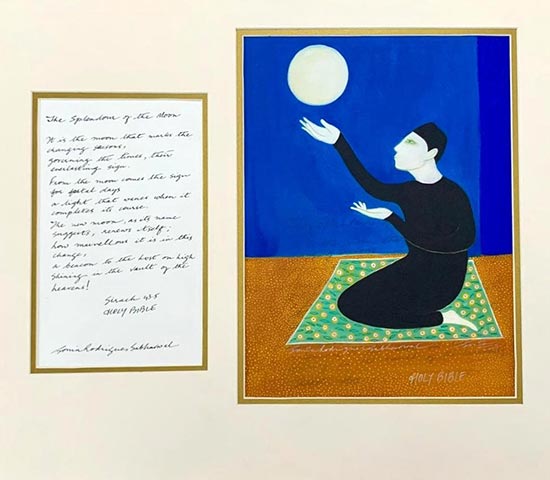 The Splendour of the Moon
It is the moon that marks the
changing seasons,
governing the times, their
everlasting sign.
From the moon comes the sign
for festal days
a light that wanes when it
completes its course.
The new moon, as its name
suggests, renews itself;
how marvellous it is in this
change,
a beacon to the host on high
shining in the vault of the
heavens!
Sirach 43:5
HOLY BIBLE
Sonia Rodrigues Sabharwal
Sonia Rodrigues Sabharwal
HOLY BIBLE